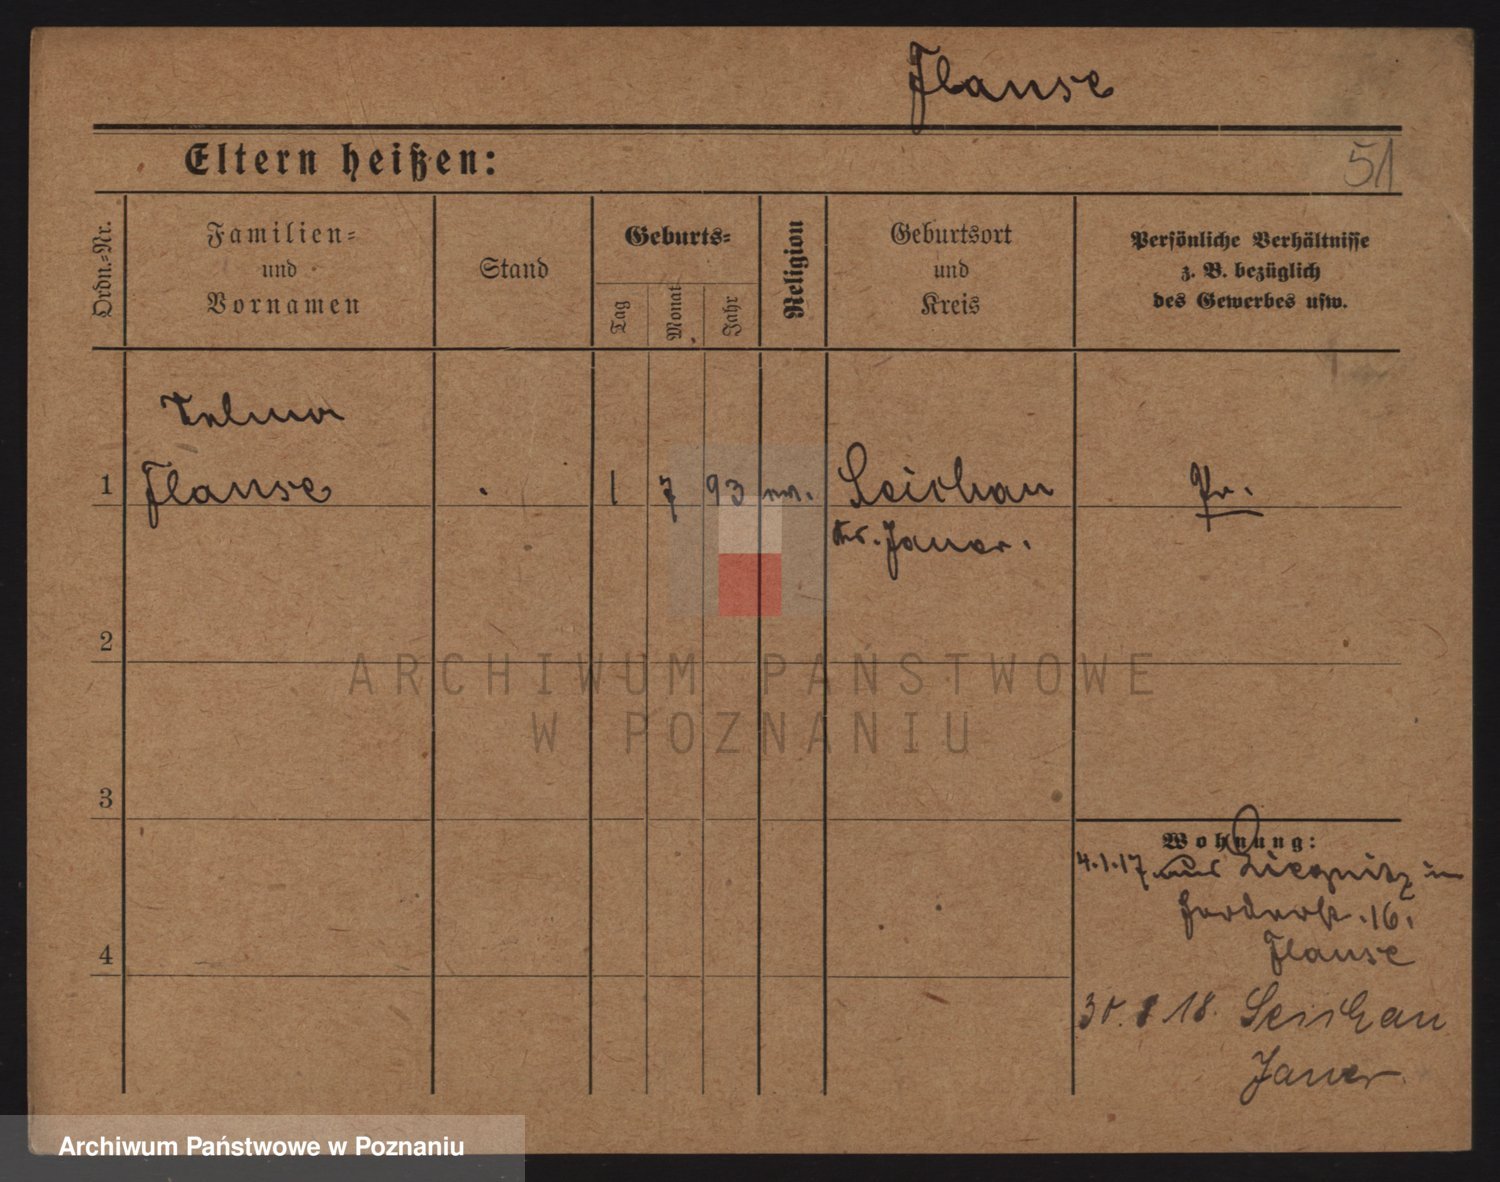 Flanse
Eltern heißen:
51
Ordn.-Nr.
Familien-
und
Vornamen
Stand
Geburts-
Tag
Monat
Jahr
Religion
Geburtsort
und
Kreis
Persönliche Verhältnisse
z. B. bezüglich
des Gewerbes usw.
Selma
1 Flanse 1 7 93 Seichau Pr.
Kr. Jauer.
2
3
4
Wohnung:
4.1.17 aus Liegnitz in
16.
Flanse
30. 8 18. Seichau
Jauer.
ARCHIWUM PAŃSTWOWE
W POZNANIU
Archiwum Państwowe w Poznaniu